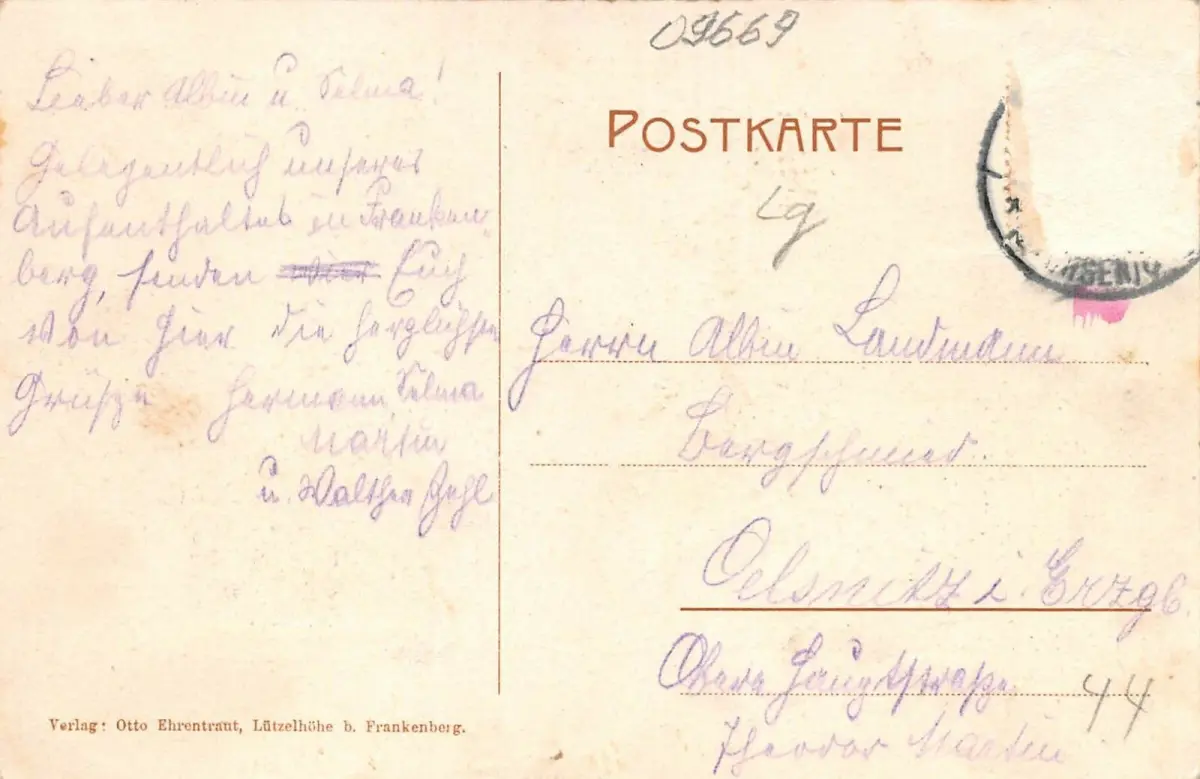 09669
Lieber Albin u. Selma!
Gelegentlich unseres
Aufenthaltes in Franken-
berg, senden Euch
von hier die herzlichsten
Grüsze Hermann, Selma
Martin
u. Walther Gehl
POSTKARTE
Lg
Herrn Albin Landmann
Bergschmied.
Oelsnitz i. Erzgb.
Obere Hauptstraße 44
Theodor Martin
Verlag: Otto Ehrentraut, Lützelhöhe b. Frankenberg.